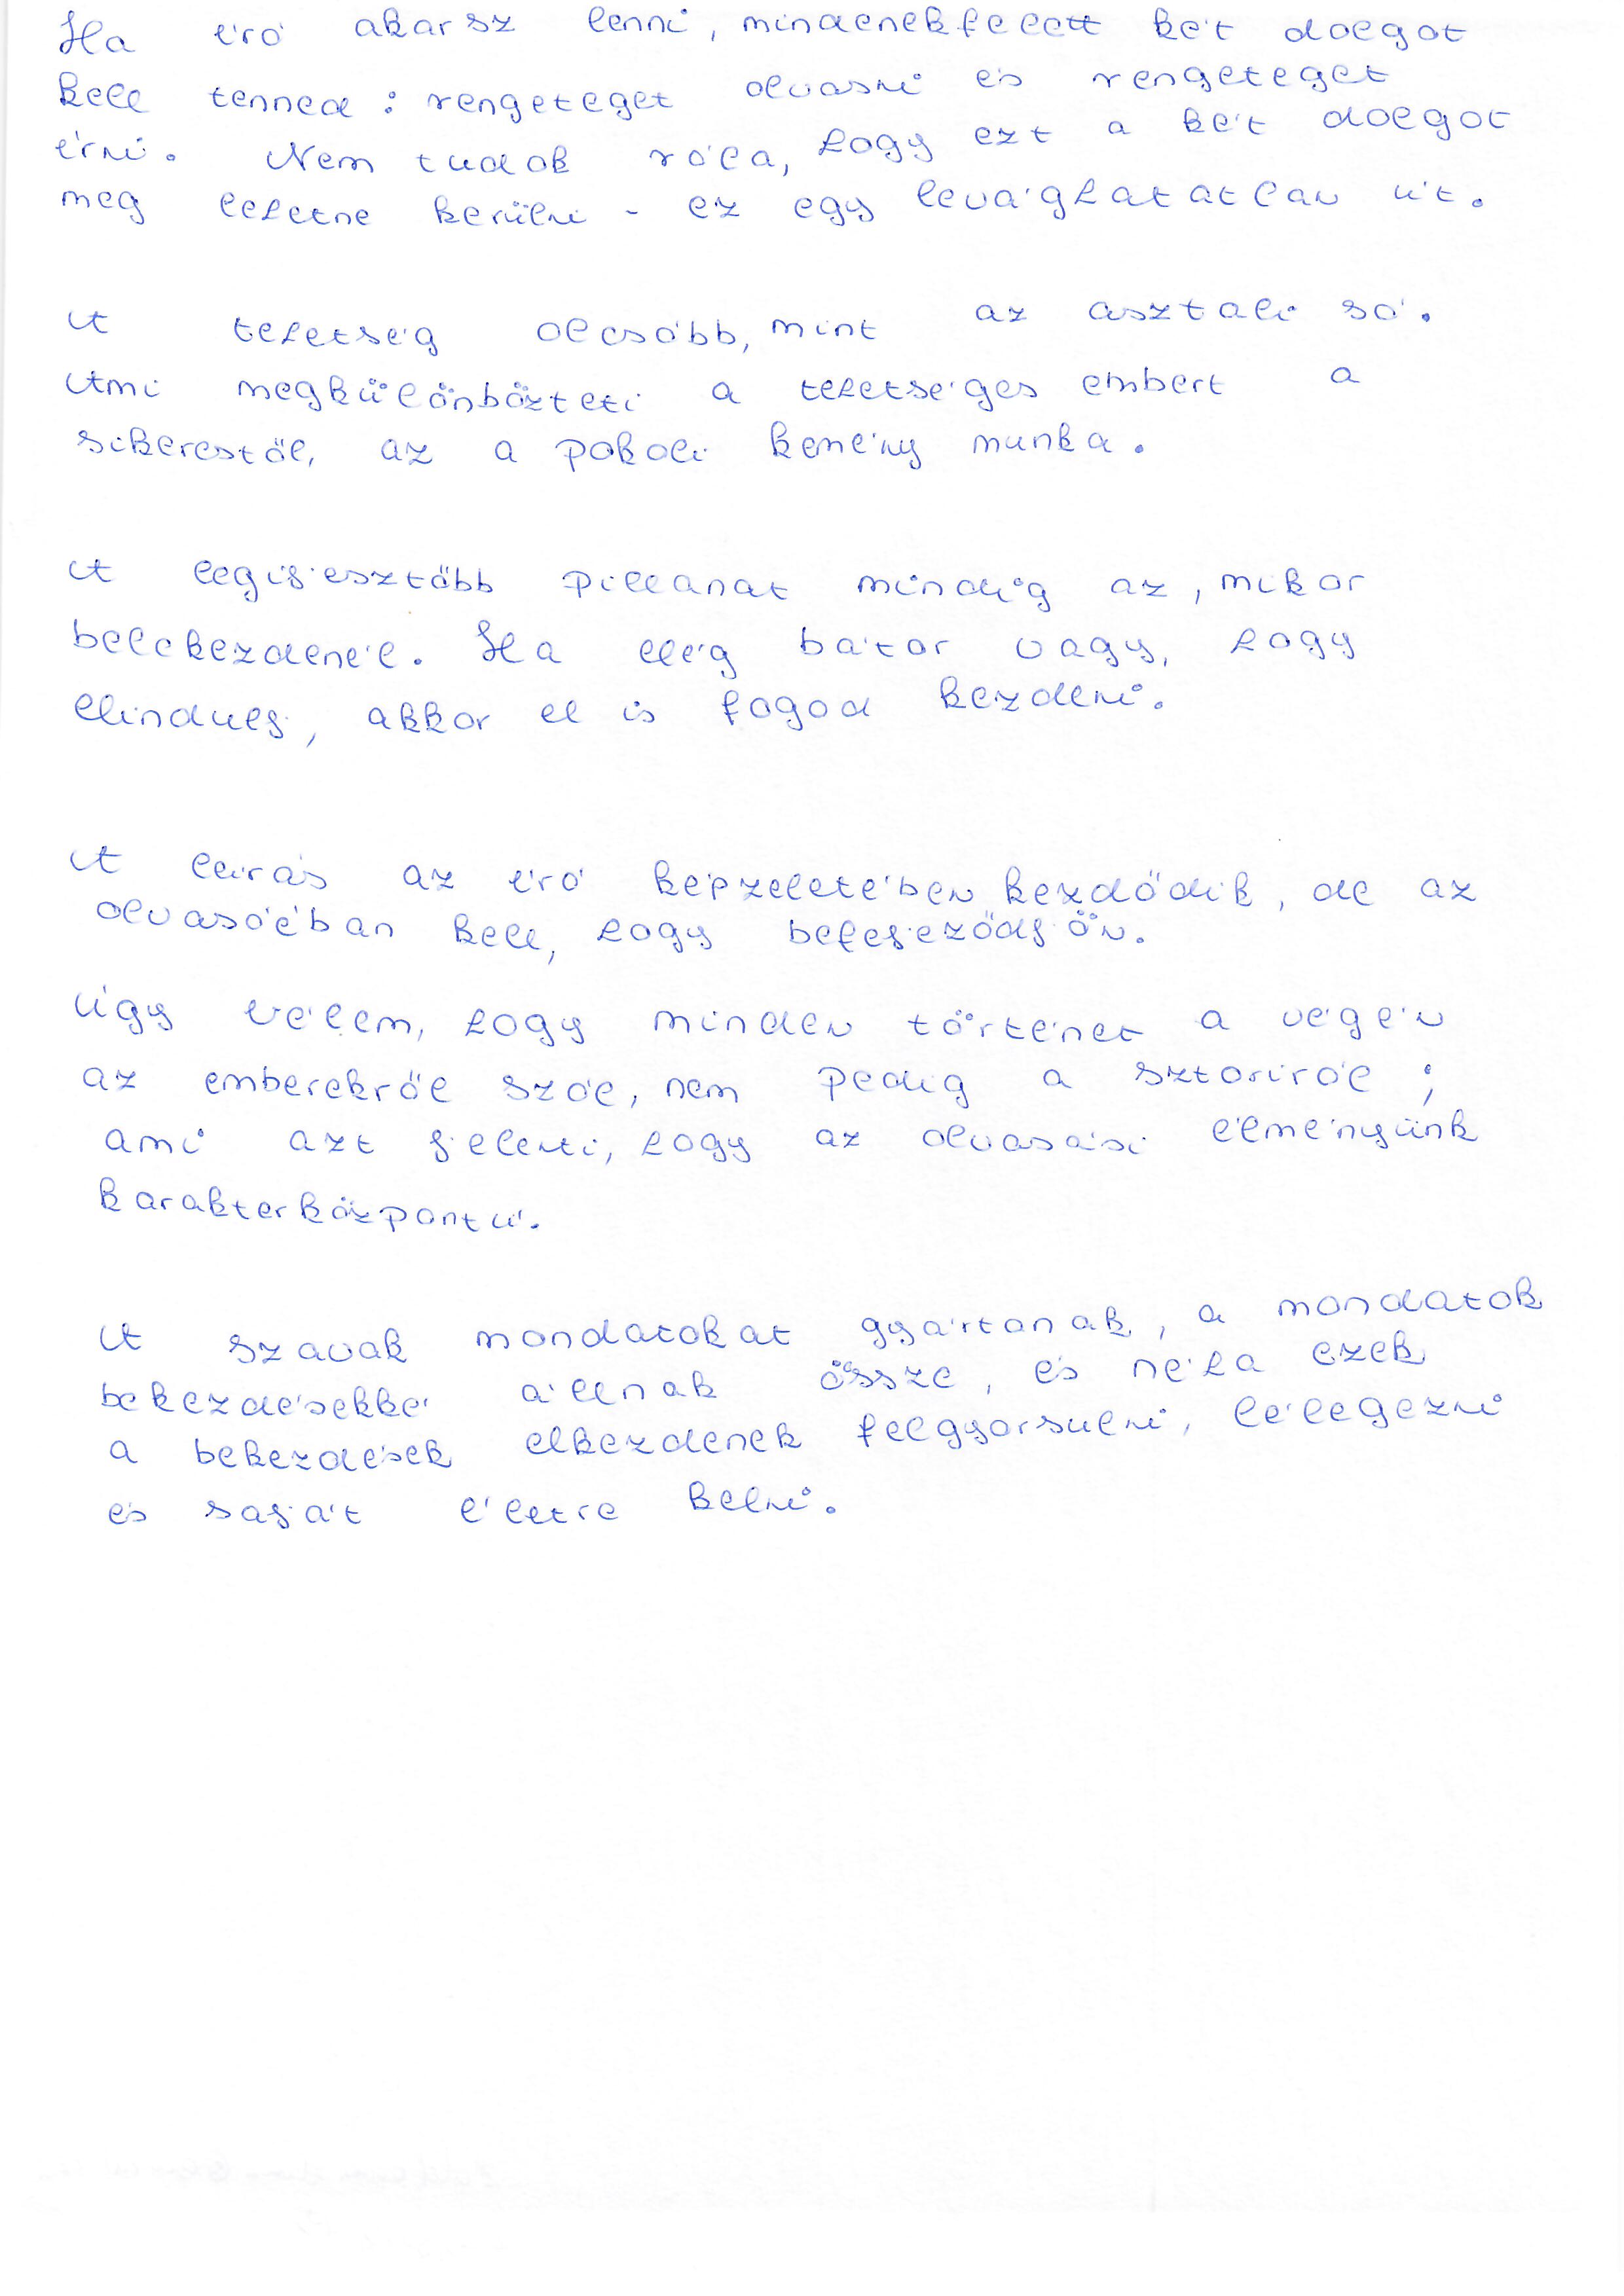 Ha író akarsz lenni, mindenekfelett két dolgot
kell tenned: rengeteget olvasni és rengeteget
írni. Nem tudok róla, hogy ezt a két dolgot
meg lehetne kerülni - ez egy levághatatlan út.
A tehetség olcsóbb, mint az asztali só.
Ami megkülönbözteti a tehetséges embert a
sikerestől, az a pokoli kemény munka.
A legijesztőbb pillanat mindig az, mikor
belekezdenél. Ha elég bátor vagy, hogy
elindulj, akkor el is fogod kezdeni.
A leírás az író képzeletében kezdődik, de az
olvasóéban kell, hogy befejeződjön.
Úgy vélem, hogy minden történet a végén
az emberekről szól, nem pedig a sztoriról;
ami azt jelenti, hogy az olvasási élményünk
karakterközpontú.
A szavak mondatokat gyártanak, a mondatok
bekezdésekké állnak össze, és néha ezek
a bekezdések elkezdenek felgyorsulni, lélegezni
és saját életre kelni.